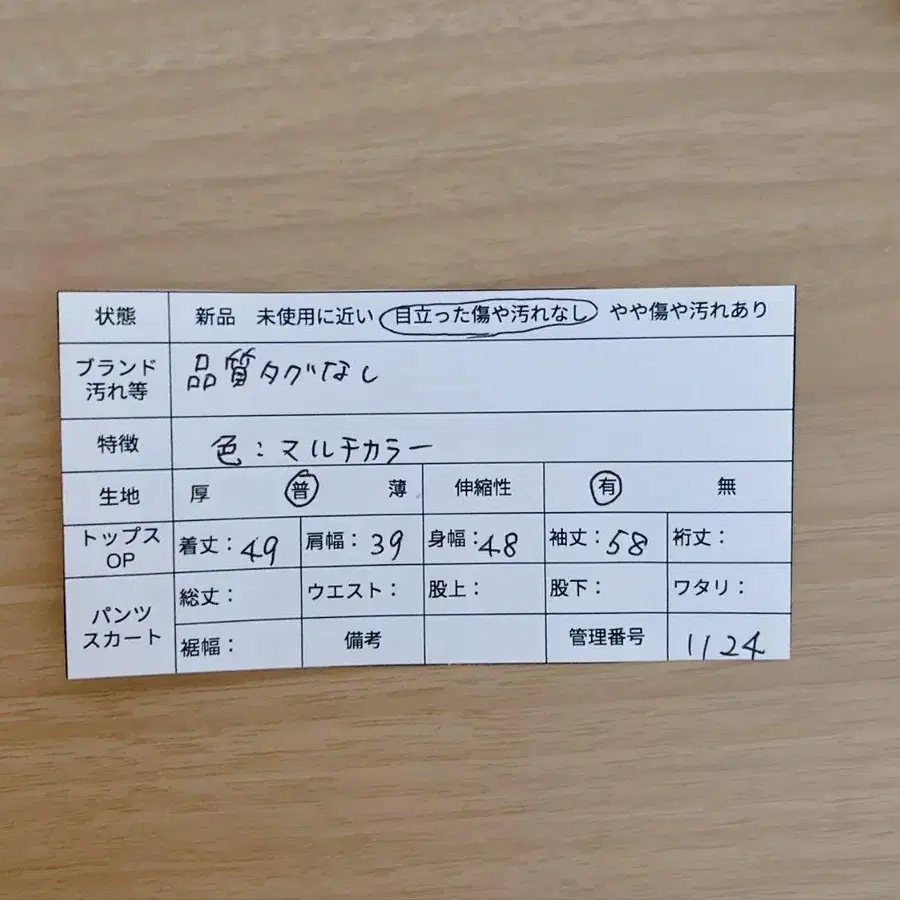 状態 新品 未使用に近い 目立った傷や汚れなし やや傷や汚れあり
ブランド
汚れ等
品質タグなし
特徴 色:マルチカラー
生地 厚 普 薄 伸縮性 有 無
トップス
OP
着丈:49 肩幅:39 身幅:48 袖丈:58 裄丈:
パンツ
スカート
総丈: ウエスト: 股上: 股下: ワタリ:
裾幅: 備考 管理番号 1124